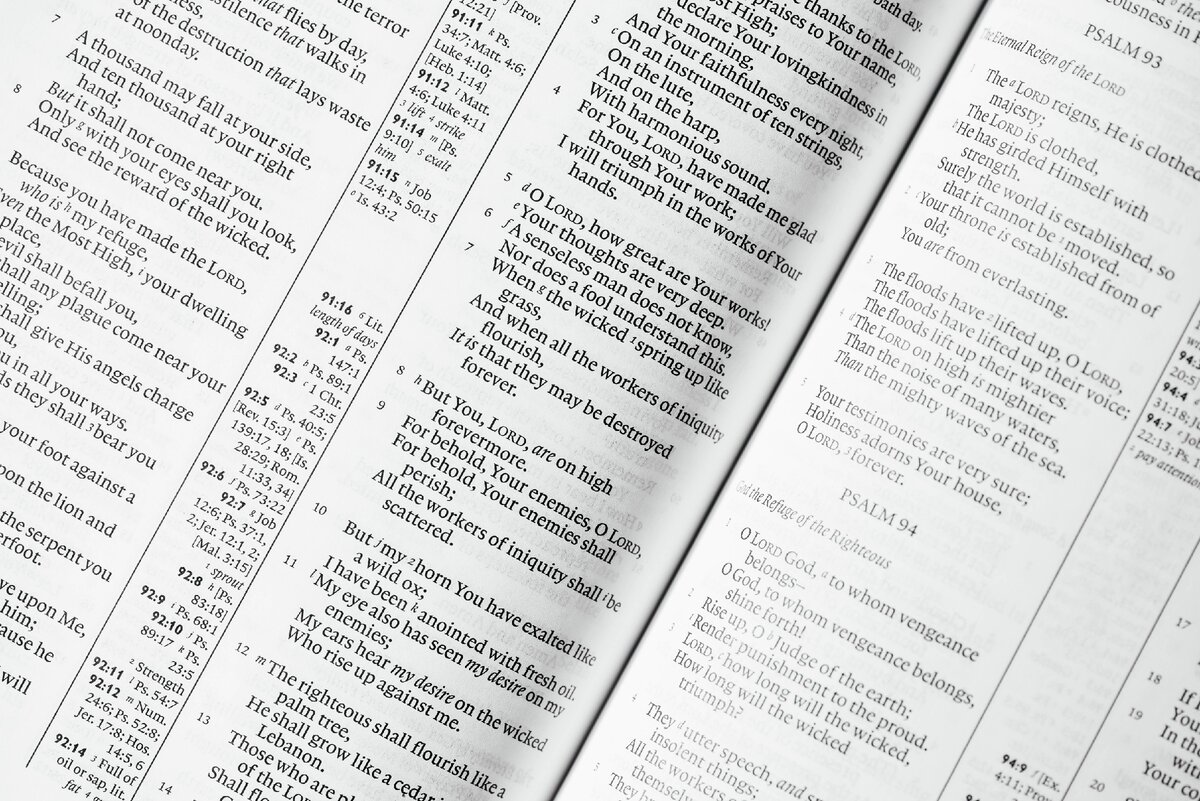 the terror
that flies by day,
pestilence that walks in
of the destruction that lays waste
at noonday.
7
A thousand may fall at your side,
And ten thousand at your right
hand;
But it shall not come near you.
8
Only g with your eyes shall you look,
And see the reward of the wicked.
Because you have made the LORD,
who is h my refuge,
Even the Most High, i your dwelling
place,
evil shall befall you,
shall any plague come near your
shall give His angels charge
you in all your ways.
they shall 3 bear you
your foot against a
upon the lion and
the serpent you
upon Me,
him;
because he
will
12:21] f [Prov.
91:11 k Ps.
34:7; Matt. 4:6;
Luke 4:10;
[Heb. 1:14]
91:12 l Matt.
4:6; Luke 4:11
3 lift 4 strike
91:14 m [Ps.
9:10] 5 exalt
him
91:15 n Job
12:4; Ps. 50:15
o Is. 43:2
91:16 6 Lit.
length of days
92:1 a Ps.
147:1
92:2 b Ps. 89:1
92:3 c 1 Chr.
23:5
92:5 d Ps. 40:5;
[Rev. 15:3] e Ps.
139:17, 18; [Is.
28:29; Rom.
11:33, 34]
92:6 f Ps. 73:22
92:7 g Job
12:6; Ps. 37:1,
2; Jer. 12:1, 2;
[Mal. 3:15]
1 sprout
92:8 h [Ps.
83:18]
92:9 i Ps. 68:1
92:10 j Ps.
89:17 k Ps.
23:5
2 Strength
92:11 l Ps. 54:7
92:12 m Num.
24:6; Ps. 52:8;
Jer. 17:8; Hos.
14:5, 6
92:14 3 Full of
oil or sap, lit.
fat
bath day.
thanks to the LORD,
praises to Your name,
Most High;
3
declare Your lovingkindness in
the morning,
And Your faithfulness every night,
c On an instrument of ten strings,
On the lute,
And on the harp,
With harmonious sound.
4
For You, LORD, have made me glad
through Your work;
I will triumph in the works of Your
hands.
5
d O LORD, how great are Your works!
e Your thoughts are very deep.
6
f A senseless man does not know,
Nor does a fool understand this.
7
When g the wicked 1 spring up like
grass,
And when all the workers of iniquity
flourish,
It is that they may be destroyed
forever.
8
h But You, LORD, are on high
forevermore.
9
For behold, Your enemies, O LORD,
For behold, Your enemies shall
perish;
All the workers of iniquity shall i be
scattered.
10
But j my 2 horn You have exalted like
a wild ox;
I have been k anointed with fresh oil.
11
l My eye also has seen my desire on my
enemies;
My ears hear my desire on the wicked
Who rise up against me.
12
m The righteous shall flourish like a
palm tree,
He shall grow like a cedar in
Lebanon.
13
Those who are
of the
14
Shall
PSALM 93
The Eternal Reign of the LORD
1
The a LORD reigns, He is clothed
majesty;
The LORD is clothed,
b He has girded Himself with
strength.
Surely the world is established, so
that it cannot be 1 moved.
2
c Your throne is established from of
old;
You are from everlasting.
3
The floods have 2 lifted up, O LORD,
The floods have lifted up their voice;
The floods lift up their waves.
4
d The LORD on high is mightier
Than the noise of many waters,
Than the mighty waves of the sea.
5
Your testimonies are very sure;
Holiness adorns Your house,
O LORD, 3 forever.
PSALM 94
God the Refuge of the Righteous
1
O LORD God, a to whom vengeance
belongs—
O God, to whom vengeance belongs,
shine forth!
2
Rise up, O b Judge of the earth;
Render punishment to the proud.
3
LORD, c how long will the wicked,
How long will the wicked
triumph?
4
They d utter speech, and
insolent things;
All the workers
5
They
94:4
31:18;
94:7
22:13; Ps.
2 pay attention
94:9 f [Ex.
4:11; Prov.
17
18
If
19
In the
20